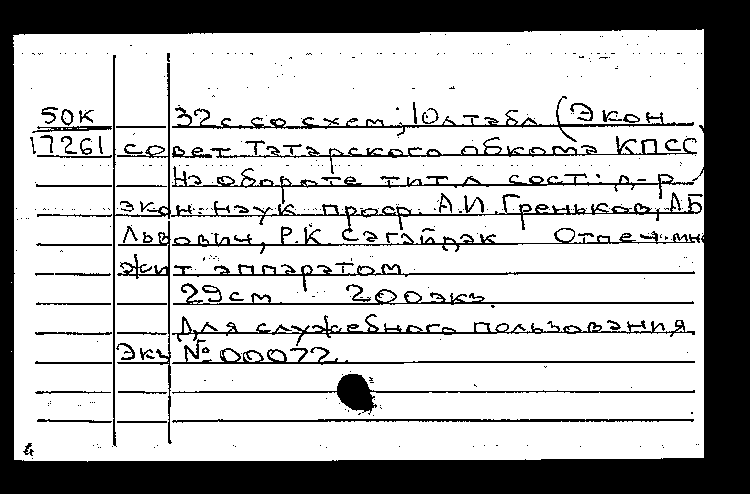 50К 32с. со схем; 10л табл. (Экон
17261 совет Татарского обкома КПСС)
На обороте тит. л. сост.: д-р
экон. наук проф. А.И. Греньков, Л.Б
Львович, Р.К. Сагайдак Отпеч. мно
жит. аппаратом.
29см 200экз.
Для служебного пользования
Экз №00072.